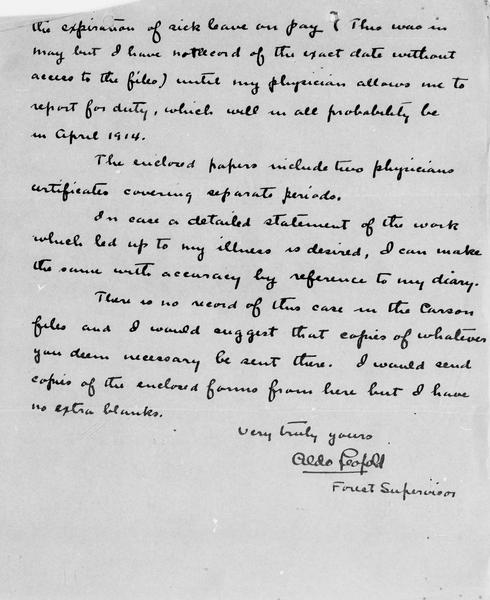 the expiration of sick leave on pay (This was in
may but I have no record of the exact date without
access to the files) until my physician allows me to
report for duty, which will in all probability be
in April 1914.
The enclosed papers include two physicians
certificates covering separate periods.
In case a detailed statement of the work
which led up to my illness is desired, I can make
the same with accuracy by reference to my diary.
There is no record of this case in the Carson
files and I would suggest that copies of whatever
you deem necessary be sent there. I would send
copies of the enclosed forms from here but I have
no extra blanks.
Very truly yours
Aldo Leopold
Forest Supervisor